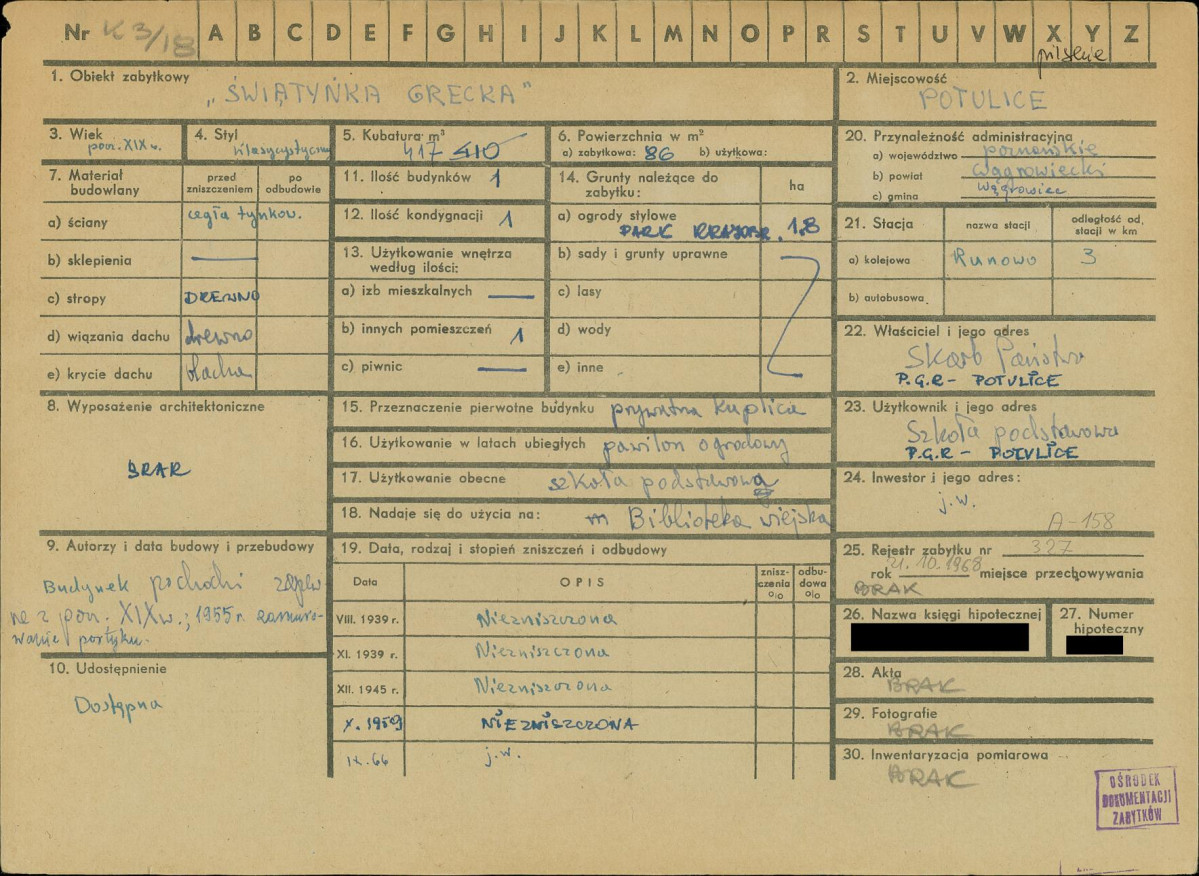 Nr K 3/18 A B C D E F G H I J K L M N O P R S T U V W X Y Z
pilskie
1. Obiekt zabytkowy
„ŚWIĄTYŃKA GRECKA"
2. Miejscowość
POTULICE
3. Wiek
pocz. XIX w.
4. Styl
klasycystyczny
5. Kubatura m³
417 410
6. Powierzchnia w m²
a) zabytkowa: 86 b) użytkowa:
7. Materiał budowlany
przed zniszczeniem
po odbudowie
a) ściany cegła tynkow.
b) sklepienia —
c) stropy DREWNO
d) wiązania dachu drewno
e) krycie dachu blacha
8. Wyposażenie architektoniczne
BRAK
9. Autorzy i data budowy i przebudowy
Budynek pochodzi zapew-
ne z pocz. XIX w.; 1955 r. zamuro-
wanie portyku.
10. Udostępnienie
Dostępna
11. Ilość budynków 1
12. Ilość kondygnacji 1
13. Użytkowanie wnętrza
według ilości:
a) izb mieszkalnych —
b) innych pomieszczeń 1
c) piwnic —
14. Grunty należące do
zabytku:
ha
a) ogrody stylowe
PARK KRAJOBR. 1.8
b) sady i grunty uprawne
c) lasy
d) wody
e) inne
15. Przeznaczenie pierwotne budynku prywatna kaplica
16. Użytkowanie w latach ubiegłych pawilon ogrodowy
17. Użytkowanie obecne szkoła podstawowa
18. Nadaje się do użycia na: Biblioteka wiejska
19. Data, rodzaj i stopień zniszczeń i odbudowy
Data OPIS znisz-czenia % odbu-dowa %
VIII. 1939 r. Niezniszczona
XI. 1939 r. Niezniszczona
XII. 1945 r. Niezniszczona
X. 1959 NIEZNISZCZONA
IX. 66 j.w.
20. Przynależność administracyjna
a) województwo poznańskie
b) powiat Wągrowiecki
c) gmina Wągrowiec
21. Stacja
nazwa stacji
odległość od stacji w km
a) kolejowa Runowo 3
b) autobusowa
22. Właściciel i jego adres
Skarb Państwa
P.G.R – POTULICE
23. Użytkownik i jego adres
Szkoła podstawowa
P.G.R – POTULICE
24. Inwestor i jego adres:
j.w.
A-158
25. Rejestr zabytku nr 327
rok 21.10.1968 miejsce przechowywania
BRAK
26. Nazwa księgi hipotecznej
27. Numer
hipoteczny
28. Akta
BRAK
29. Fotografie
BRAK
30. Inwentaryzacja pomiarowa
BRAK
OŚRODEK
DOKUMENTACJI
ZABYTKÓW